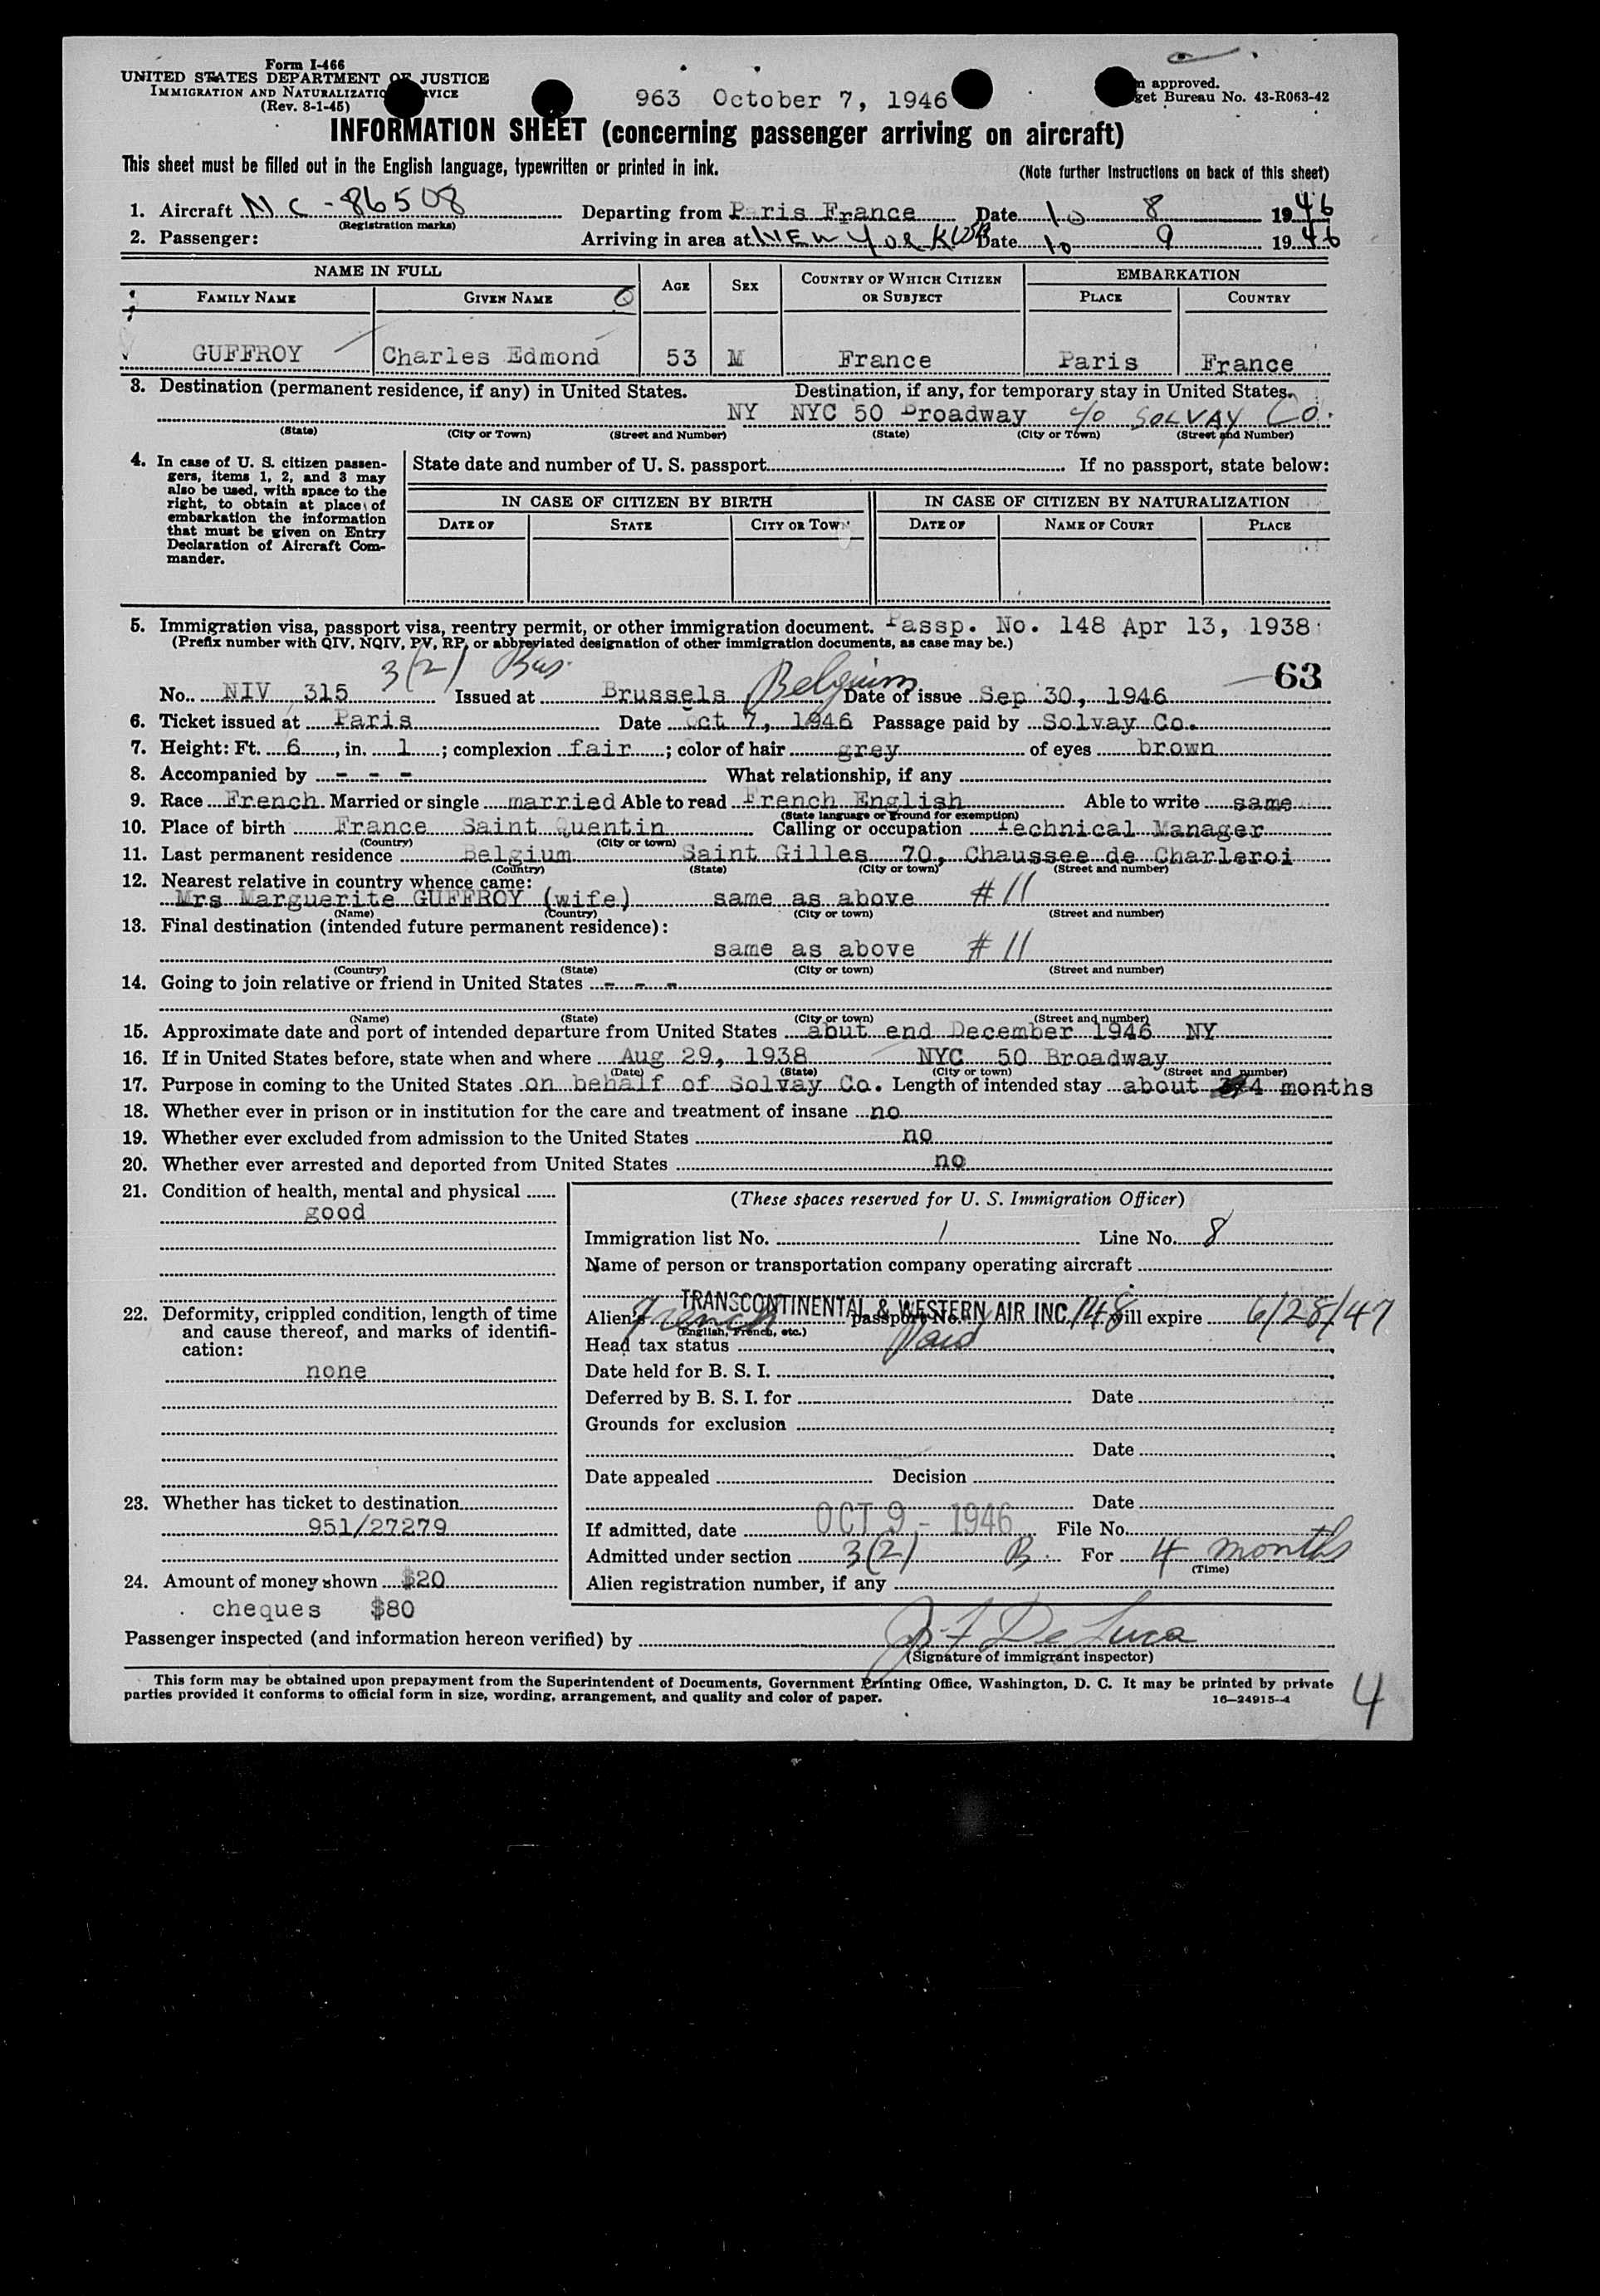 Form I-466
UNITED STATES DEPARTMENT OF JUSTICE
IMMIGRATION AND NATURALIZATION SERVICE
(Rev. 8-1-45)
963 October 7, 1946
approved.
get Bureau No. 43-R063-42
INFORMATION SHEET (concerning passenger arriving on aircraft)
This sheet must be filled out in the English language, typewritten or printed in ink.
(Note further instructions on back of this sheet)
1. Aircraft NC-86508 Departing from Paris France Date 10 8 1946
(Registration marks)
2. Passenger: Arriving in area at NEW YORK USA Date 10 9 1946
NAME IN FULL AGE SEX COUNTRY OF WHICH CITIZEN OR SUBJECT EMBARKATION
FAMILY NAME GIVEN NAME PLACE COUNTRY
GUFFROY Charles Edmond 53 M France Paris France
3. Destination (permanent residence, if any) in United States. Destination, if any, for temporary stay in United States.
NY NYC 50 Broadway c/o SOLVAY Co.
(State) (City or Town) (Street and Number) (State) (City or Town) (Street and Number)
4. In case of U. S. citizen passengers, items 1, 2, and 3 may also be used, with space to the right, to obtain at place of embarkation the information that must be given on Entry Declaration of Aircraft Commander.
State date and number of U. S. passport If no passport, state below:
IN CASE OF CITIZEN BY BIRTH IN CASE OF CITIZEN BY NATURALIZATION
DATE OF STATE CITY OR TOWN DATE OF NAME OF COURT PLACE
5. Immigration visa, passport visa, reentry permit, or other immigration document. Passp. No. 148 Apr 13, 1938
(Prefix number with QIV, NQIV, PV, RP, or abbreviated designation of other immigration documents, as case may be.)
3(2) Bus.
63
No. NIV 315 Issued at Brussels Belgium Date of issue Sep 30, 1946
6. Ticket issued at Paris Date Oct 7, 1946 Passage paid by Solvay Co.
7. Height: Ft. 6, in. 1; complexion fair; color of hair grey of eyes brown
8. Accompanied by - - - What relationship, if any
9. Race French Married or single married Able to read French English Able to write same
(State language or ground for exemption)
10. Place of birth France Saint Quentin Calling or occupation Technical Manager
(Country) (City or town)
11. Last permanent residence Belgium Saint Gilles 70, Chaussee de Charleroi
(Country) (State) (City or town) (Street and number)
12. Nearest relative in country whence came:
Mrs Marguerite GUFFROY (wife) same as above # 11
(Name) (Country) (City or town) (Street and number)
13. Final destination (intended future permanent residence):
same as above # 11
(Country) (State) (City or town) (Street and number)
14. Going to join relative or friend in United States - - -
(Name) (State) (City or town) (Street and number)
15. Approximate date and port of intended departure from United States abut end December 1946 NY
16. If in United States before, state when and where Aug 29, 1938 NYC 50 Broadway
(Date) (State) (City or town) (Street and number)
17. Purpose in coming to the United States on behalf of Solvay Co. Length of intended stay about 4 months
18. Whether ever in prison or in institution for the care and treatment of insane no
19. Whether ever excluded from admission to the United States no
20. Whether ever arrested and deported from United States no
21. Condition of health, mental and physical
good
22. Deformity, crippled condition, length of time and cause thereof, and marks of identification:
none
23. Whether has ticket to destination
951/27279
24. Amount of money shown $20
cheques $80
(These spaces reserved for U. S. Immigration Officer)
Immigration list No. 1 Line No. 8
Name of person or transportation company operating aircraft
TRANSCONTINENTAL & WESTERN AIR INC.
Alien's French passport No. 148 will expire 6/28/47
(English, French, etc.)
Head tax status Paid
Date held for B. S. I.
Deferred by B. S. I. for Date
Grounds for exclusion
Date
Date appealed Decision
Date
If admitted, date OCT 9 - 1946 File No.
Admitted under section 3(2) B. For 4 months
(Time)
Alien registration number, if any
Passenger inspected (and information hereon verified) by De Luca
(Signature of immigrant inspector)
This form may be obtained upon prepayment from the Superintendent of Documents, Government Printing Office, Washington, D. C. It may be printed by private
parties provided it conforms to official form in size, wording, arrangement, and quality and color of paper. 16-24915-4
4